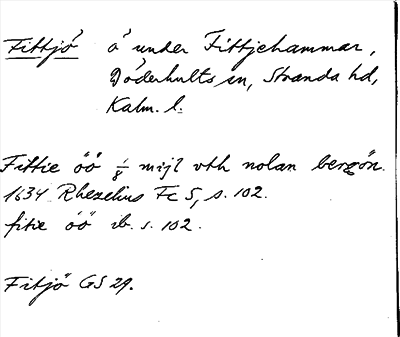 Fittjö ö under Fittjehammar,
Döderhults sn, Stranda hd,
Kalm. l.
Fittie öö 1/8 mijl vth nolan bergön.
1634 Rhezelius Fc 5, s. 102.
fitie öö ib. s. 102.
Fitjö GS 29.